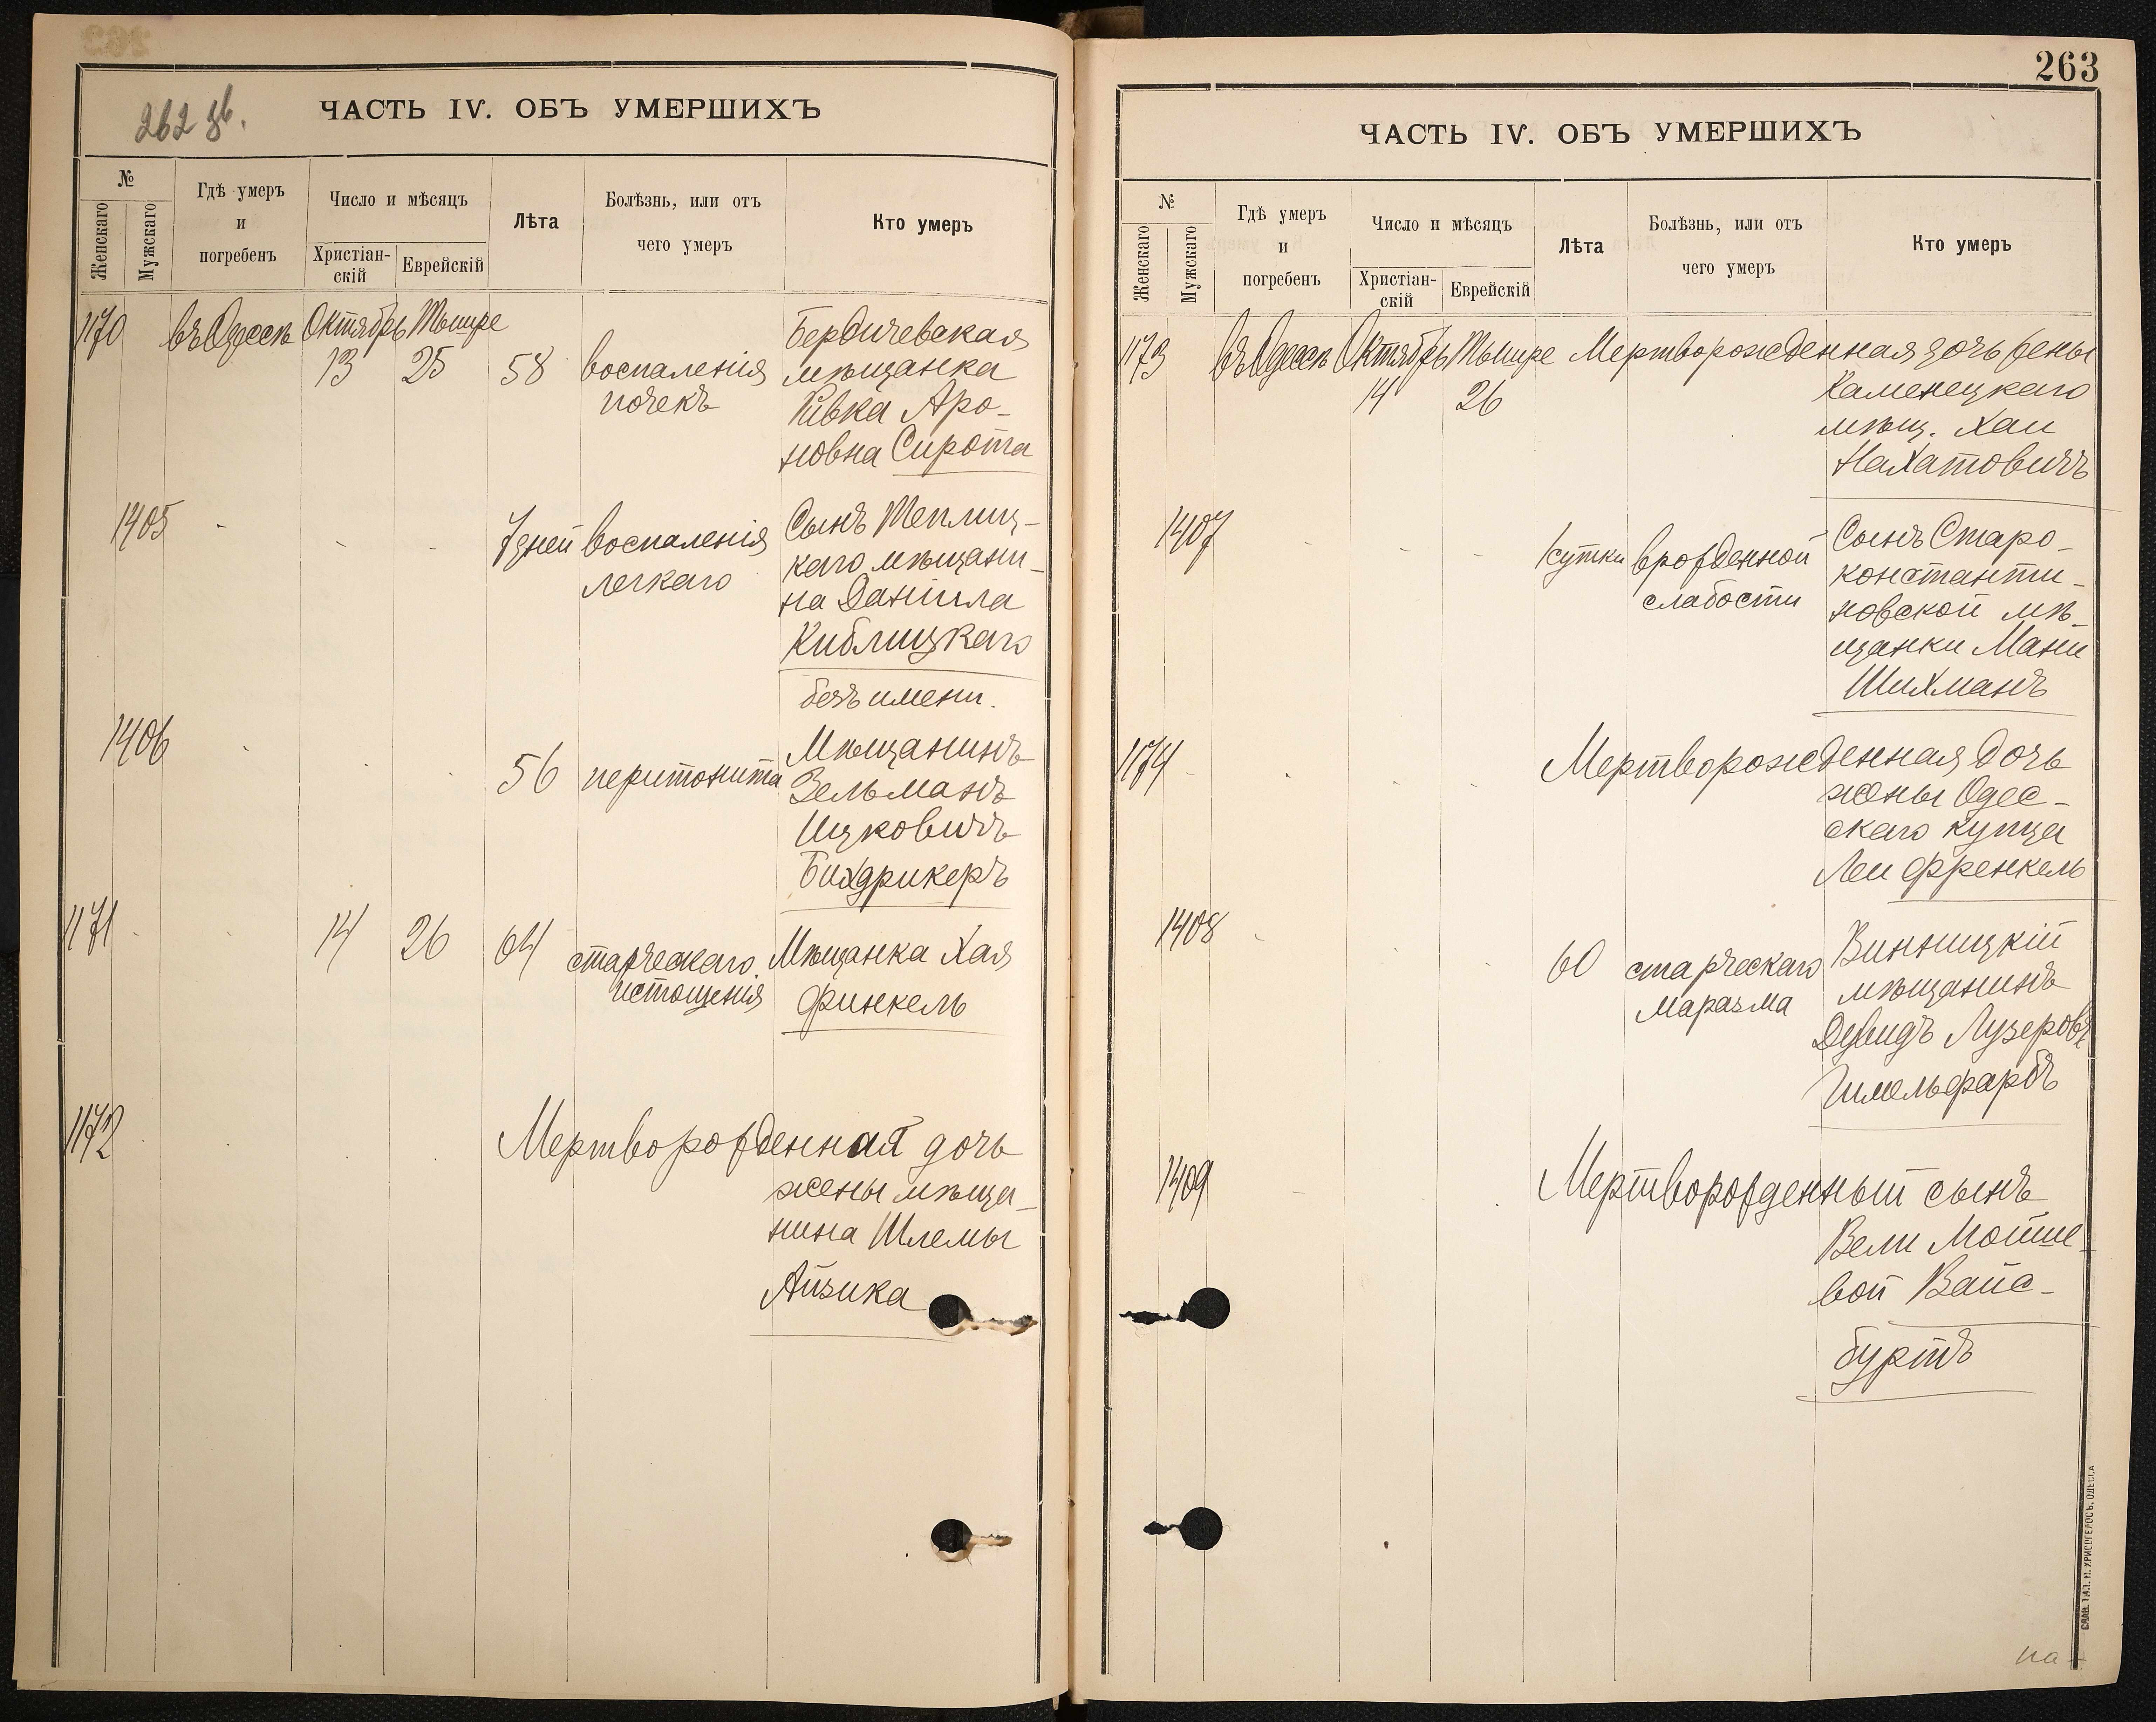 262 зв.
ЧАСТЬ IV. ОБЪ УМЕРШИХЪ
№
Женскаго
Мужскаго
Гдѣ умеръ
и
погребенъ
Число и мѣсяцъ
Христіан-
скій
Еврейскій
Лѣта
Болѣзнь, или отъ
чего умеръ
Кто умеръ
1170 въ Одессѣ Октябрь Тышре Бердичевская
13 25 58 воспаленія мѣщанка
почекъ Ривка Аро-
новна Сирота
1405 7 дней воспаленія Сынъ Теплиц-
легкаго каго мѣщани-
на Даніила
Киблицкаго
безъ имени.
1406 Мѣщанинъ
56 перитонита Зельманъ
Ицковичъ
Бихдрикеръ
1171 14 26 64 старческаго Мѣщанка Хая
истощенія Финкель
1172 Мертворожденная дочь
жены мѣща-
нина Шлемы
Айзика
263
ЧАСТЬ IV. ОБЪ УМЕРШИХЪ
№
Женскаго
Мужскаго
Гдѣ умеръ
и
погребенъ
Число и мѣсяцъ
Христіан-
скій
Еврейскій
Лѣта
Болѣзнь, или отъ
чего умеръ
Кто умеръ
1173 въ Одессѣ Октябрь Тышре Мертворожденная дочь жены
14 26 Каменецкаго
мѣщ. Хаи
Нахатовичъ
1407 1 сутки врожденной Сынъ Старо-
слабости константи-
новской мѣ-
щанки Мани
Шихманъ
1174 Мертворожденная дочь
жены Одес-
скаго купца
Леи Френкель
1408 60 старческаго Винницкій
маразма мѣщанинъ
Дувидъ Лузеровъ
Гимельфарбъ
1409 Мертворожденный сынъ
Вели Мойше-
вой Вайс-
буртъ